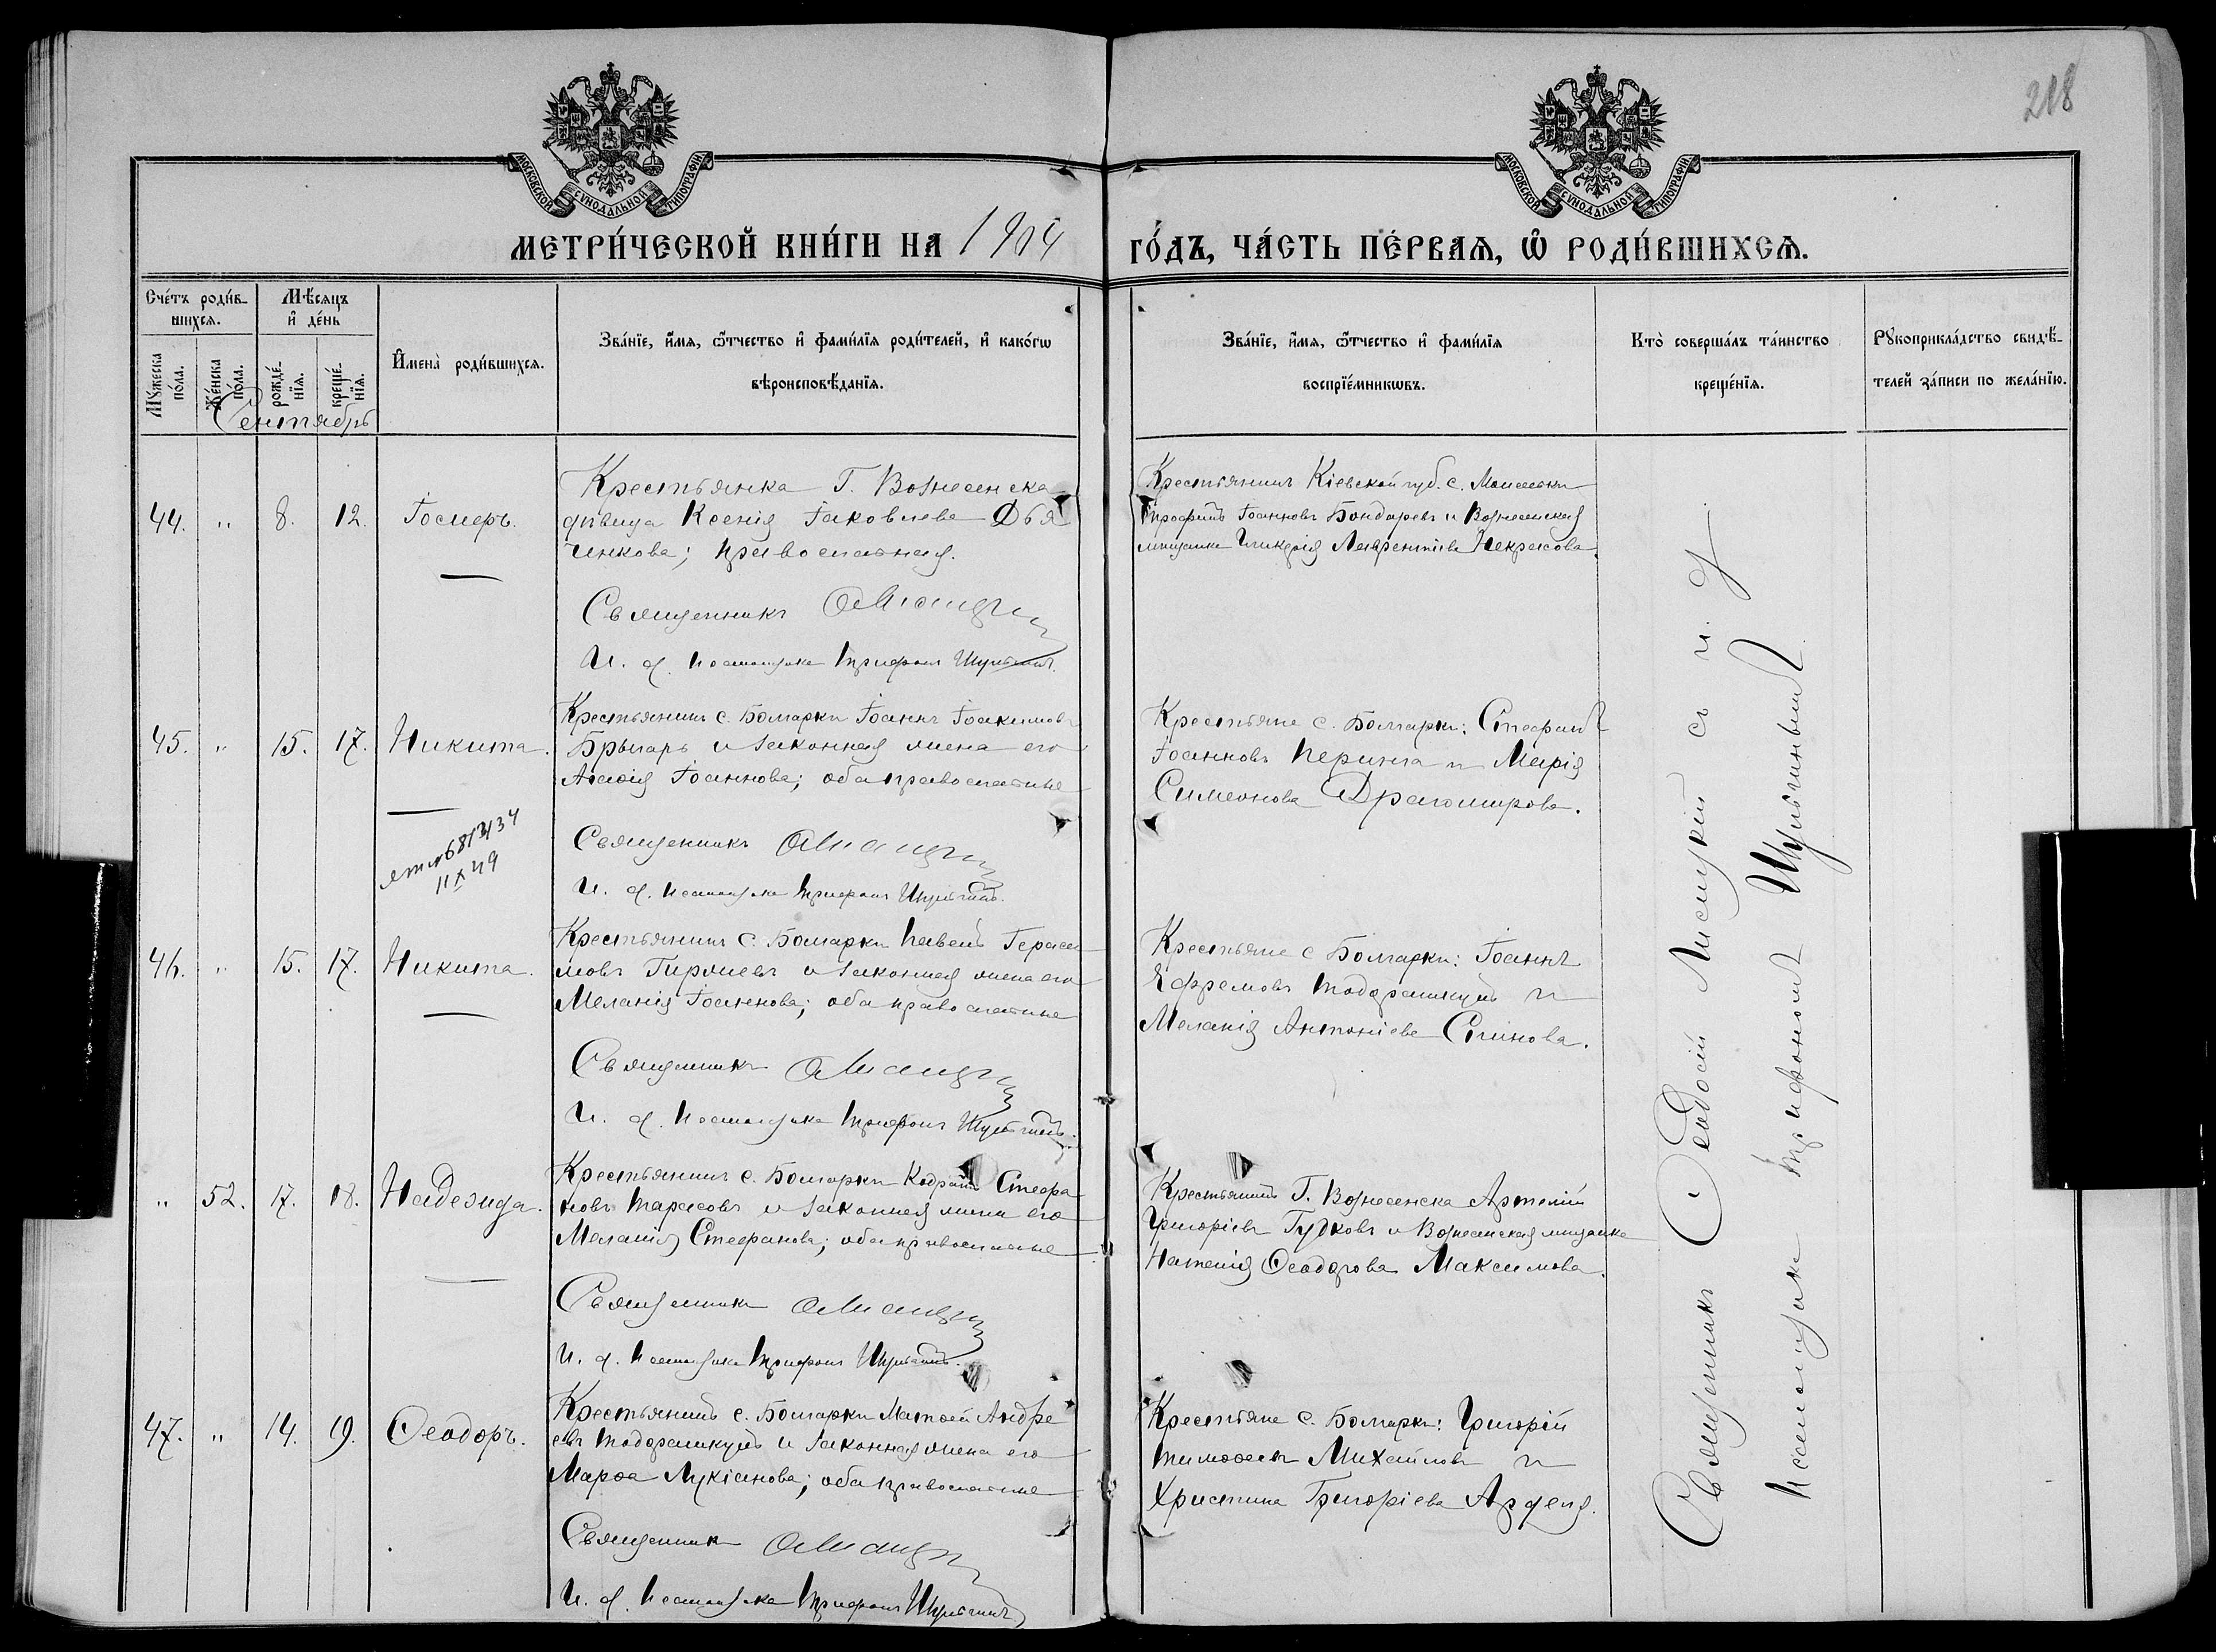 218
МОСКОВСКОЙ СѴНОДАЛЬНОЙ ТИПОГРАФІИ
МОСКОВСКОЙ СѴНОДАЛЬНОЙ ТИПОГРАФІИ
МЕТРИ́ЧЕСКОЙ КНИ́ГИ НА 1904 ГО́ДЪ, ЧА́СТЬ ПЕ́РВАЯ, Ѡ РОДИ́ВШИХСЯ.
Сче́тъ роди́в-
шихся.
Мꙋ́жеска по́ла.
Же́нска по́ла.
Мѣ́сяцъ и де́нь
рожде́нїя.
креще́нїя.
Имена̀ роди́вшихся.
Зва́нїе, и́мя, ѻ҆́тчество и фами́лїя роди́телей, и како́гѡ
вѣроисповѣ́данїя.
Зва́нїе, и́мя, ѻ҆́тчество и фами́лїя
воспрїе́мникѡвъ.
Кто̀ соверша́лъ та́инство
креще́нїя.
Рꙋкоприкла́дство свидѣ́-
телей за́писи по жела́нїю.
Сентябрь
44. " 8. 12. Іосифъ.
Крестьянка Г. Вознесенска
дѣвица Ксенія Іаковлева Дья
чикова; православная.
Священникъ
И. д. псаломщика Трифонъ Шульгинъ.
Крестьянинъ Кіевской губ. с. Моисеевки
Трофимъ Іоанновъ Бондаревъ и Вознесенская
мѣщанка Гликерія Лаврентіева Некрасова.
45. " 15. 17. Никита.
Крестьянинъ с. Болгарки Іоаннъ Іоакимовъ
Брынзарь и законная жена его
Агафія Іоаннова; оба православные
Священникъ
И. д. псаломщика Трифонъ Шульгинъ.
Крестьяне с. Болгарки: Стефанъ
Іоанновъ Перинга и Марія
Симеонова Драгомирова.
11 X 49
46. " 15. 17. Никита.
Крестьянинъ с. Болгарки Павелъ Гераси
мовъ Гиржевъ и законная жена его
Меланія Іоаннова; оба православные
Священникъ
И. д. псаломщика Трифонъ Шульгинъ.
Крестьяне с Болгарки: Іоаннъ
Ефремовъ Тодорашкулъ и
Меланія Антоніева Слинова.
" 52. 17. 18. Надежда.
Крестьянинъ с. Болгарки Кодратъ Стефа
новъ Тарасовъ и законная жена его
Меланія Стефанова; оба православные
Священникъ
И. д. псаломщика Трифонъ Шульгинъ.
Крестьянинъ Г. Вознесенска Артемій
Григоріевъ Гудковъ и Вознесенская мѣщанка
Наталія Ѳеодорова Максимова.
47. " 14. 19. Ѳеодоръ.
Крестьянинъ с. Болгарки Матѳей Андре
евъ Тодорашкулъ и законная жена его
Марѳа Лукіанова; оба православные
Священникъ
И. д. псаломщика Трифонъ Шульгинъ
Крестьяне с. Болгарки: Григорій
Тимоѳеевъ Михайловъ и
Христина Григоріева Арделя.
Священникъ Ѳеодосій Лисицкій съ и. д
псаломщика Трифономъ Шульгинымъ